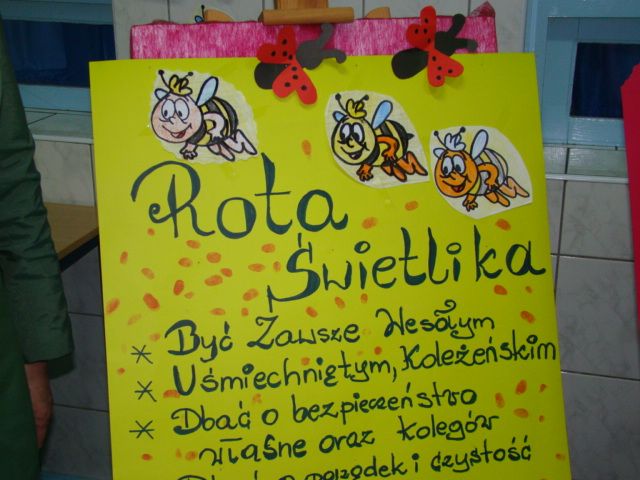 Rota
Świetlika
* Być Zawsze Wesołym
* Uśmiechniętym, Koleżeńskim
* Dbać o bezpieczeństwo
własne oraz kolegów
Dbać o porządek i czystość